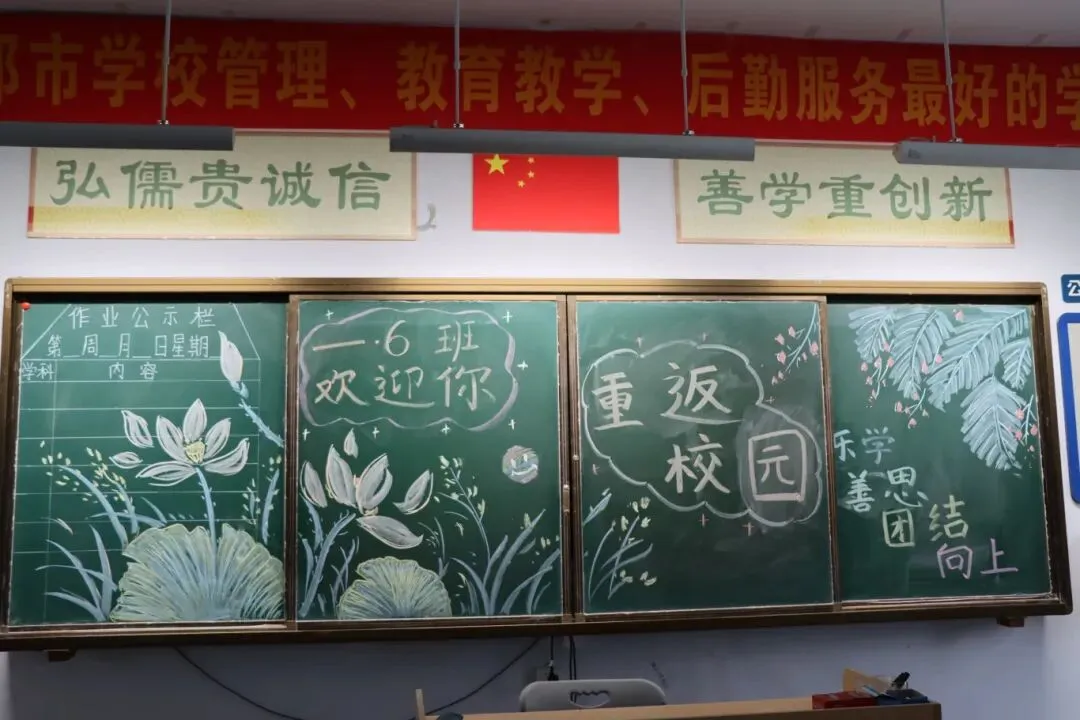 市学校管理、教育教学、后勤服务最好的学
弘儒贵诚信
善学重创新
作业公示栏
第__周__月__日星期
学科 内容
一·6 班
欢迎你
重返
校园
乐学
善思
团结
向上
公